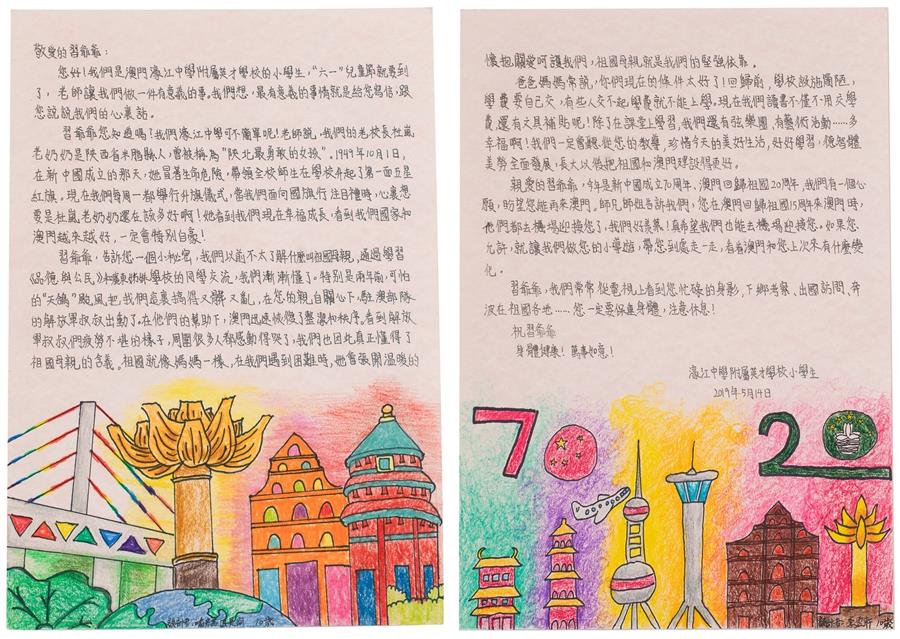 敬愛的習爺爺:
您好!我們是澳門濠江中學附屬英才學校的小學生,“六一”兒童節就要到
了,老師讓我們做一件有意義的事。我們想,最有意義的事情就是給您寫信,跟
您說說我們的心裏話。
習爺爺您知道嗎!我們濠江中學可不簡單呢!老師說,我們的老校長杜嵐
老奶奶是陝西省米脂縣人,曾被稱為“陝北最勇敢的女孩”。1949年10月1日,
在新中國成立的那天,她冒著生命危險,帶領全校師生在學校升起了第一面五星
紅旗。現在我們每周一都舉行升旗儀式,當我們面向國旗行注目禮時,心裏想
要是杜嵐老奶奶還在該多好啊!她看到我們現在幸福成長,看到我們國家和
澳門越來越好,一定會特別自豪!
習爺爺,告訴您一個小秘密,我們以前不太了解什麼叫祖國母親,通過學習
《品德與公民》和廣東姊妹學校的同學交流,我們漸漸懂了。特別是兩年前,可怕
的“天鴿”颱風把我們這裏搞得又髒又亂,在您的親自關心下,駐澳部隊
的解放軍叔叔出動了。在他們的幫助下,澳門迅速恢復了整潔和秩序。看到解放
軍叔叔們疲勞不堪的樣子,周圍很多人都感動得哭了,我們也因此真正懂得了
祖國母親的含義。祖國就像媽媽一樣,在我們遇到困難時,她會張開溫暖的
10歲
懷抱,關愛呵護我們,祖國母親就是我們的堅強依靠。
爸爸媽媽常說,你們現在的條件太好了!回歸前,學校設施簡陋,
學費要自己交,有些人交不起學費就不能上學。現在我們讀書不僅不用交學
費,還有文具補貼呢!除了在課堂上學習,我們還有弦樂團,有藝術活動……多
幸福啊!我們一定會聽從您的教導,珍惜今天的美好生活,好好學習,德智體
美勞全面發展,長大以後把祖國和澳門建設得更好。
親愛的習爺爺,今年是新中國成立70周年、澳門回歸祖國20周年,我們有一個心
願,盼望您能再來澳門。師兄師姐告訴我們,您在澳門回歸祖國15周年來澳門時,
他們都去機場迎接您了,我們好羨慕!真希望我們也能去機場迎接您。如果您
允許,就讓我們做您的小導遊,帶您到處走一走,看看澳門和您上次來有什麼變
化。
習爺爺,我們常常從電視上看到您忙碌的身影,下鄉考察、出國訪問、奔
波在祖國各地……您一定要保重身體,注意休息!
祝習爺爺
身體健康!萬事如意!
濠江中學附屬英才學校小學生
2019年5月14日
70
20
10歲